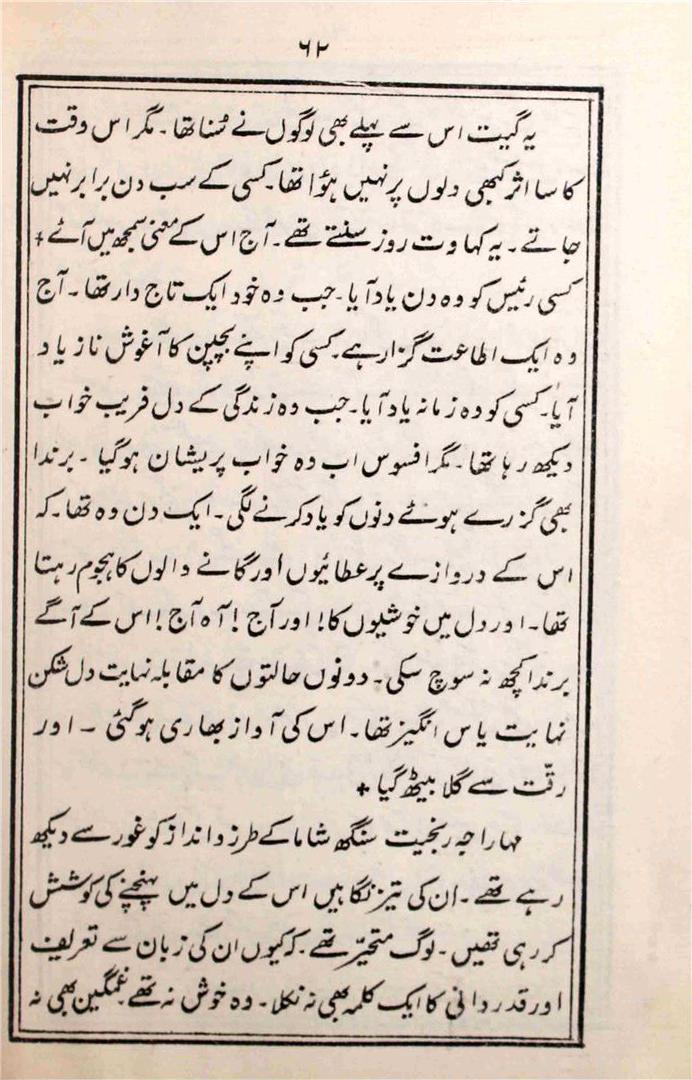 ۶۲
یہ گیت اس سے پہلے بھی لوگوں نے سُنا تھا۔ مگر اس وقت
کا سا اثر کبھی دلوں پر نہیں ہؤا تھا۔ کسی کے سب دن برابر نہیں
جاتے۔ یہ کہاوت روز سنتے تھے۔ آج اس کے معنی سمجھ میں آئے +
کسی رئیس کو وہ دن یاد آیا۔ جب وہ خود ایک تاج دار تھا۔ آج
وہ ایک اطاعت گزار ہے۔ کسی کو اپنے بچپن کا آغوش ناز یاد
آیا۔ کسی کو وہ زمانہ یاد آیا۔ جب وہ زندگی کے دل فریب خواب
دیکھ رہا تھا۔ مگر افسوس اب وہ خواب پریشان ہوگیا ۔ برندا
بھی گزرے ہوئے دنوں کو یاد کرنے لگی۔ ایک دن وہ تھا۔ کہ
اس کے دروازے پر عطائیوں اور گانے والوں کا ہجوم رہتا
تھا۔ اور دل میں خوشیوں کا! اور آج! آہ آج! اس کے آگے
برندا کچھ نہ سوچ سکی۔ دونوں حالتوں کا مقابلہ نہایت دل شکن
نہایت یاس انگیز تھا۔ اس کی آواز بھاری ہوگئی ۔ اور
رقّت سے گلا بیٹھ گیا +
مہاراجہ رنجیت سنگھ شاما کے طرز و انداز کو غور سے دیکھ
رہے تھے۔ ان کی تیز نگاہیں اس کے دل میں پہنچنے کی کوشش
کر رہی تھیں۔ لوگ متحیّر تھے۔ کہ کیوں ان کی زبان سے تعریف
اور قدردانی کا ایک کلمہ بھی نہ نکلا۔ وہ خوش نہ تھے۔ غمگین بھی نہ